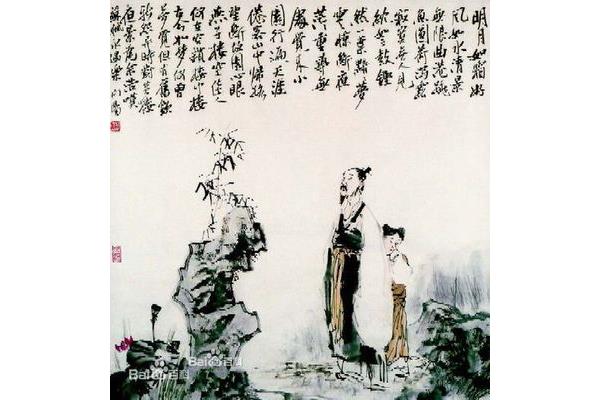 明月如霜好
風如水清景
無限曲港跳
魚圓荷瀉露
寂寞無人見
紞如三鼓鏗
然一葉黯黯夢
雲驚斷夜
茫茫重尋無
處覺來小
園行遍天涯
倦客山中歸路
望斷故園心眼
燕子樓空佳人
何在空鎖樓中燕
古今如夢何曾
夢覺但有舊歡
新怨異時對黃樓
夜景為余浩嘆
蘇軾永遇樂
Bai百科
Bai百科